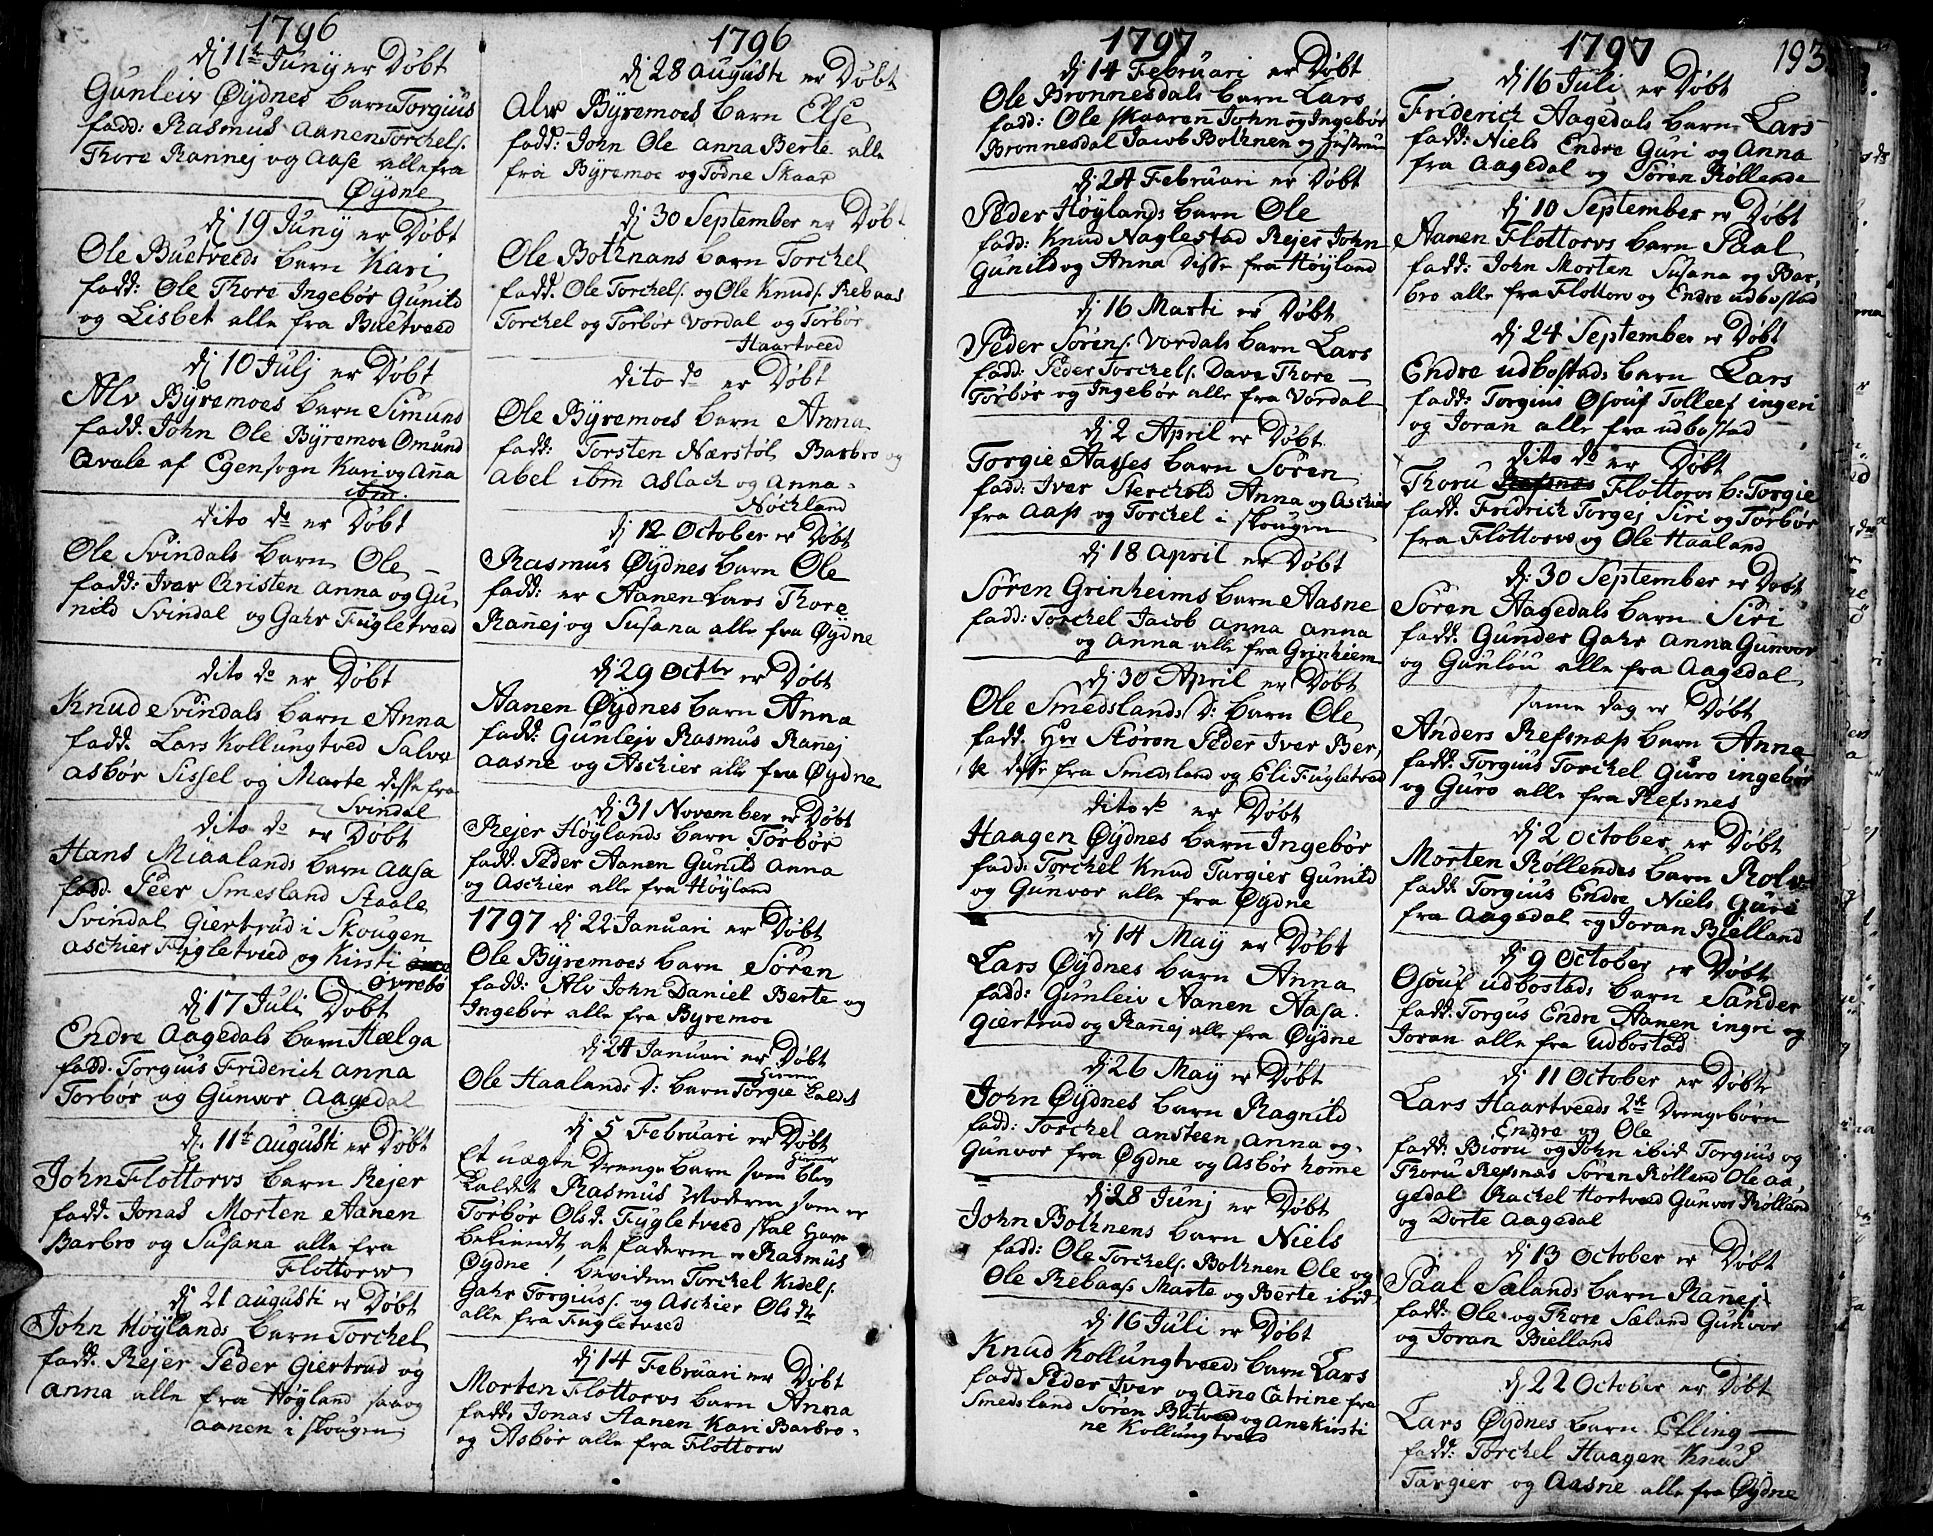 1796
dj 11te Junij er Døbt
Gunleiv Øydnes barn Torgius
fadd: Rasmus Aanen Torchels.
Thore Rannej og Aase alle fra
Øydne
dj 19 Junij er Døbt
Ole Buetveeds barn Kari
fadd: Ole Thore Ingebør Gunild
og Lisbet alle fra Buetveed
dj 10 Julj er Døbt
Alv Byremoes barn Simund
fadd: John Ole Byremoe Omund
Qvale af Egensogn Kari og Aña
ibm.
dito do er Døbt
Ole Svindals barn Ole
fadd: Iver Christen Anna og Gu
nild Svindal og Gahr Fugletveed
dito do er Døbt
Knud Svindals barn Anna
fadd. Lars Kollungtved Salve
asbør Sissel og Marte disse fra
Svindal
dito do er Døbt
Hans Miaalands barn Aasa
fadd. Peer Smesland Staale
Svindal Giertrud i Skougen
aschier Fugletveed og Kirsti
Øvrebø
dj 17 Juli Døbt
Endre Aagedals barn Hælga
fadd. Torgius Friderich Anna
Torbør og Gunvor Aagedal
dj. 11te augusti er Døbt
John Flottorvs barn Rejer
fadd. Jonas Morten Aanen
Barbro og Susana alle fra
Flottorw
dj 21 augusti er Døbt
John Høylands barn Torchel
fadd. Rejer Peder Giertrud og
anna alle fra Høyland saa og
aanen i skougen
1796
dj 28 augusti er Døbt
Alv Byremoes barn Else
fadd: John Ole Anna Berte alle
fra Byremoe og Todne Skaar
dj 30 September er Døbt
Ole Bothnans barn Torchel
fadd. Ole Torchels. og Ole Knuds. Rebaas
Torchel og Torbør Vordal og Torbør
Haartveed
dito do er Døbt
Ole Byremoes barn Anna
fadd: Torsten Nærstøl Barbro og
Abel ibm Aslach og Anna
Nøchland
dj 12 October er Døbt
Rasmus Øydnes barn Ole
fadd: er Aanen Lars Thore
Rañej og Susana alle fra Øydne
dj 29 Octbr er Døbt
Aanen Øydnes barn Anna
fadd: Gunlejv Rasmus Rañej
Aasne og Aschier alle fra Øydne
dj 31 November er Døbt
Rejer Høylands barn Torbør
fadd. Peder Aanen Gunild Anna
og Aschier alle fra Høyland
1797 dj 22 Januari er Døbt
Ole Byremoes barn Søren
fadd: Alv John Daniel Berte og
Ingebør alle fra Byremoe
dj 24 Januari er Døbt
hiemme
Ole Haalands D: barn Torgie Kaldet
dj 5 Februari er Døbt
hiemme
Et uægte Drenge barn som blev
Kaldet Rasmus Moderen som er
Torbør Olsd. Fugletveed skal have
bekiendt at faderen er Rasmus
Øydne / beviden Torchel Kidels.
Gahr Torgius/. og Aschier Olsdtr
alle fra Fugletveed
dj 14 Februari er Døbt
Morten Flottorvs barn Anna
fadd. Jonas Aanen Kari Barbro
og Asbør alle fra Flottorw
1797
dj 14 Februari er Døbt
Ole Brønnesdals barn Lars
fadd: Ole Skaaren John og Ingebør
Brønnesdal Jacob Bothnen og hustrue
dj 24 Februari er Døbt
Peder Høylands barn Ole
fadd: Knud Naglestad Rejer John
Gunild og Anna disse fra Høyland
dj 16 Marti er Døbt
Peder Sørens. Vordals barn Lars
fadd: Peder Torchels. Dave Thore
Torbør og Ingebør alle fra Vordal
dj 2 April er Døbt
Torgie Aasses barn Søren
fadd: Iver Sterchold Anna og Aschier
fra Aass og Torchel i skougen
dj 18 April er Døbt
Søren Grinheims barn Aasne
fadd: Torchel Jacob Anna Anna
og Anna alle fra Grinhiem
dj 30 April er Døbt
Ole Smedslands D: barn Ole
fadd. Hr Støren Peder Iver Ber,
te disse fra Smedsland og Eli Fugletvad
dito do er Døbt
Haagen Øydnes barn Ingebør
fadd: Torchel Knud Targier Gunild
og Gunvor alle fra Øydne
dj 14 May er Døbt
Lars Øydnes barn Anna
fadd: Gunleiv Aanen Aasa.
Giertrud og Rañej alle fra Øydne
dj 26 May er Døbt
John Øydnes barn Ragnild
fadd: Torchel Ansteen, Anna og
Gunvor fra Øydne og Asbør home
dj 28 Junj er Døbt
John Bothnens barn Niels
fadd: Ole Torchels. Bothnen Ole og
Ole Rebaas Marte og Berte ibid.
dj 16 Juli er Døbt
Knud Kollungtveeds barn Lars
fadd Peder Iver og Añe Catrine fra
Smedsland Søren Blitveed og Ane Kirsti
ne Kollungtveed
1797
193
dj 16 Juli er Døbt
Friderich Aagedals barn Lars
fadd: Niels Endre Guri og Anna
fra Aagedal og Søren Røllende
dj 10 September er Døbt
Aanen Flottorvs barn Paal
fadd: John Morten Susana og Bar,
bro alle fra Flottorv og Endre udbostad
dj 24 September er Døbt
Endre udbostads barn Lars
fadd: Torgius Osouf Tolleef ingeri
og Joran alle fra udbostad
dito do er Døbt
Thoru Flottorvs b: Torgie
fadd: Fridrich Torgej Siri og Torbør
fra Flottorv og Ole Haaland
dj. 30 September er Døbt
Søren Aagedals barn Siri
fadd: Gunder Gahr Anna Gunvor
og Gunlou alle fra Aagedal
same dag er Døbt
Anders Refsnæss barn Anna
fadd: Torgius Torchel Guro ingebør
og Guro alle fra Refsnes
dj 2 October er Døbt
Morten Rollendes barn Rolv
fadd: Torgius Endre Niels Guri
fra Aagedal og Joran Bielland
dj 9 October er Døbt
Osouf udbostads barn Sander
fadd: Torgus Endre Aanen ingri og
Joran alle fra udbostad
dj 11 October er Døbt
Lars Haartveeds 2de Drengebørn
Endre og Ole
fadd: Bioru og John ibid Torgius og
Thoru Refsnes Søren Rolland Ole aa,
gedal Rachel Hortveed Gunvor Rølland
og Dorte Aagedal
dj 13 October er Døbt
Paal Sælands barn Rañej
fadd: Ole og Thore Sæland Gunvor
og Joran Bielland
dj 22 October er Døbt
Lars Øydnes barn Elling
fadd: Torchel Haagen Knud
Targier og Aasne alle fra Øydne